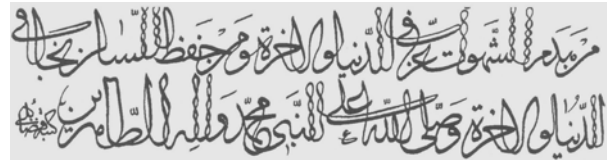 من الشهوت عز في الدنيا والاخرة ومن حفظ اللسان نجا في
الدنيا والاخرة وصلى الله على النبي محمد واله الطاهرين